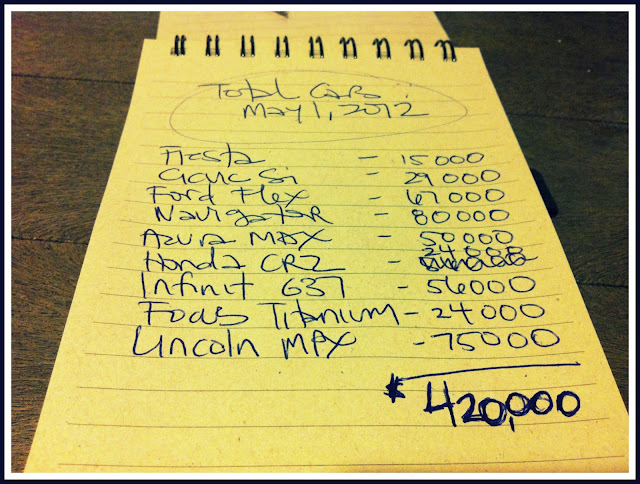 Total Cars:
May 1, 2012
Fiesta - 15000
Civic Si - 29000
Ford Flex - 67000
Navigator - 80000
Acura MDX - 50000
Honda CRZ - 24000
Infinit G37 - 56000
Focus Titanium - 24000
Lincoln - 75000
$ 420,000